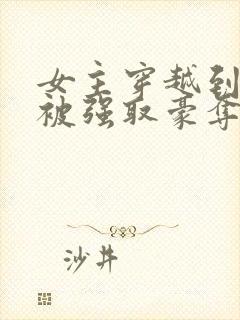 女主穿越到
被强取豪夺
沙井